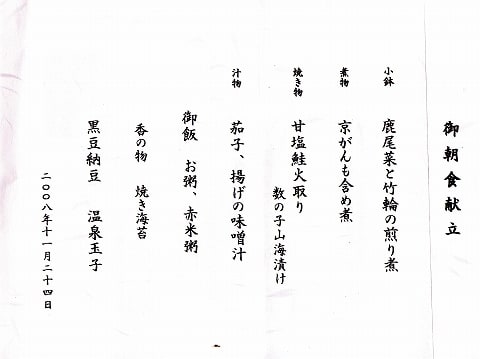 御朝食献立
小鉢 鹿尾菜と竹輪の煎り煮
煮物 京がんも含め煮
焼き物 甘塩鮭火取り
数の子山海漬け
汁物 茄子、揚げの味噌汁
御飯 お粥、赤米粥
香の物 焼き海苔
黒豆納豆 温泉玉子
二〇〇八年十一月二十四日